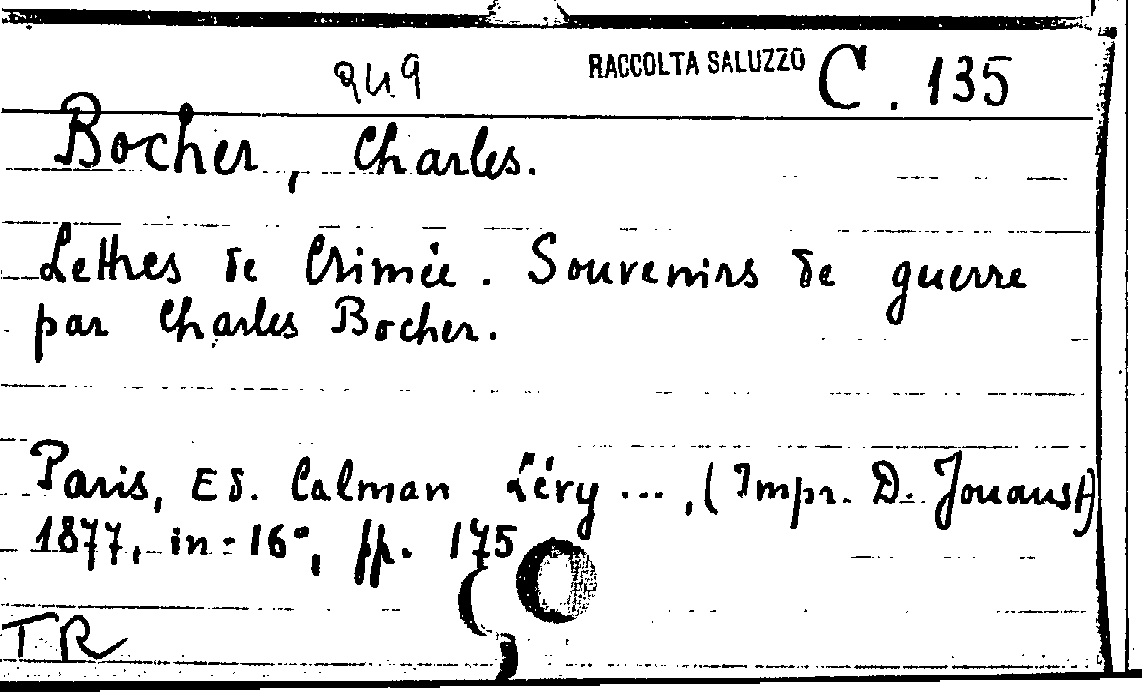 249 RACCOLTA SALUZZO C. 135
Bocher, Charles.
Lettres de Crimée. Souvenirs de guerre
par Charles Bocher.
Paris, Ed. Calman Lévy ..., (Impr. D. Jouaust)
1877, in-16°, pp. 175
TR